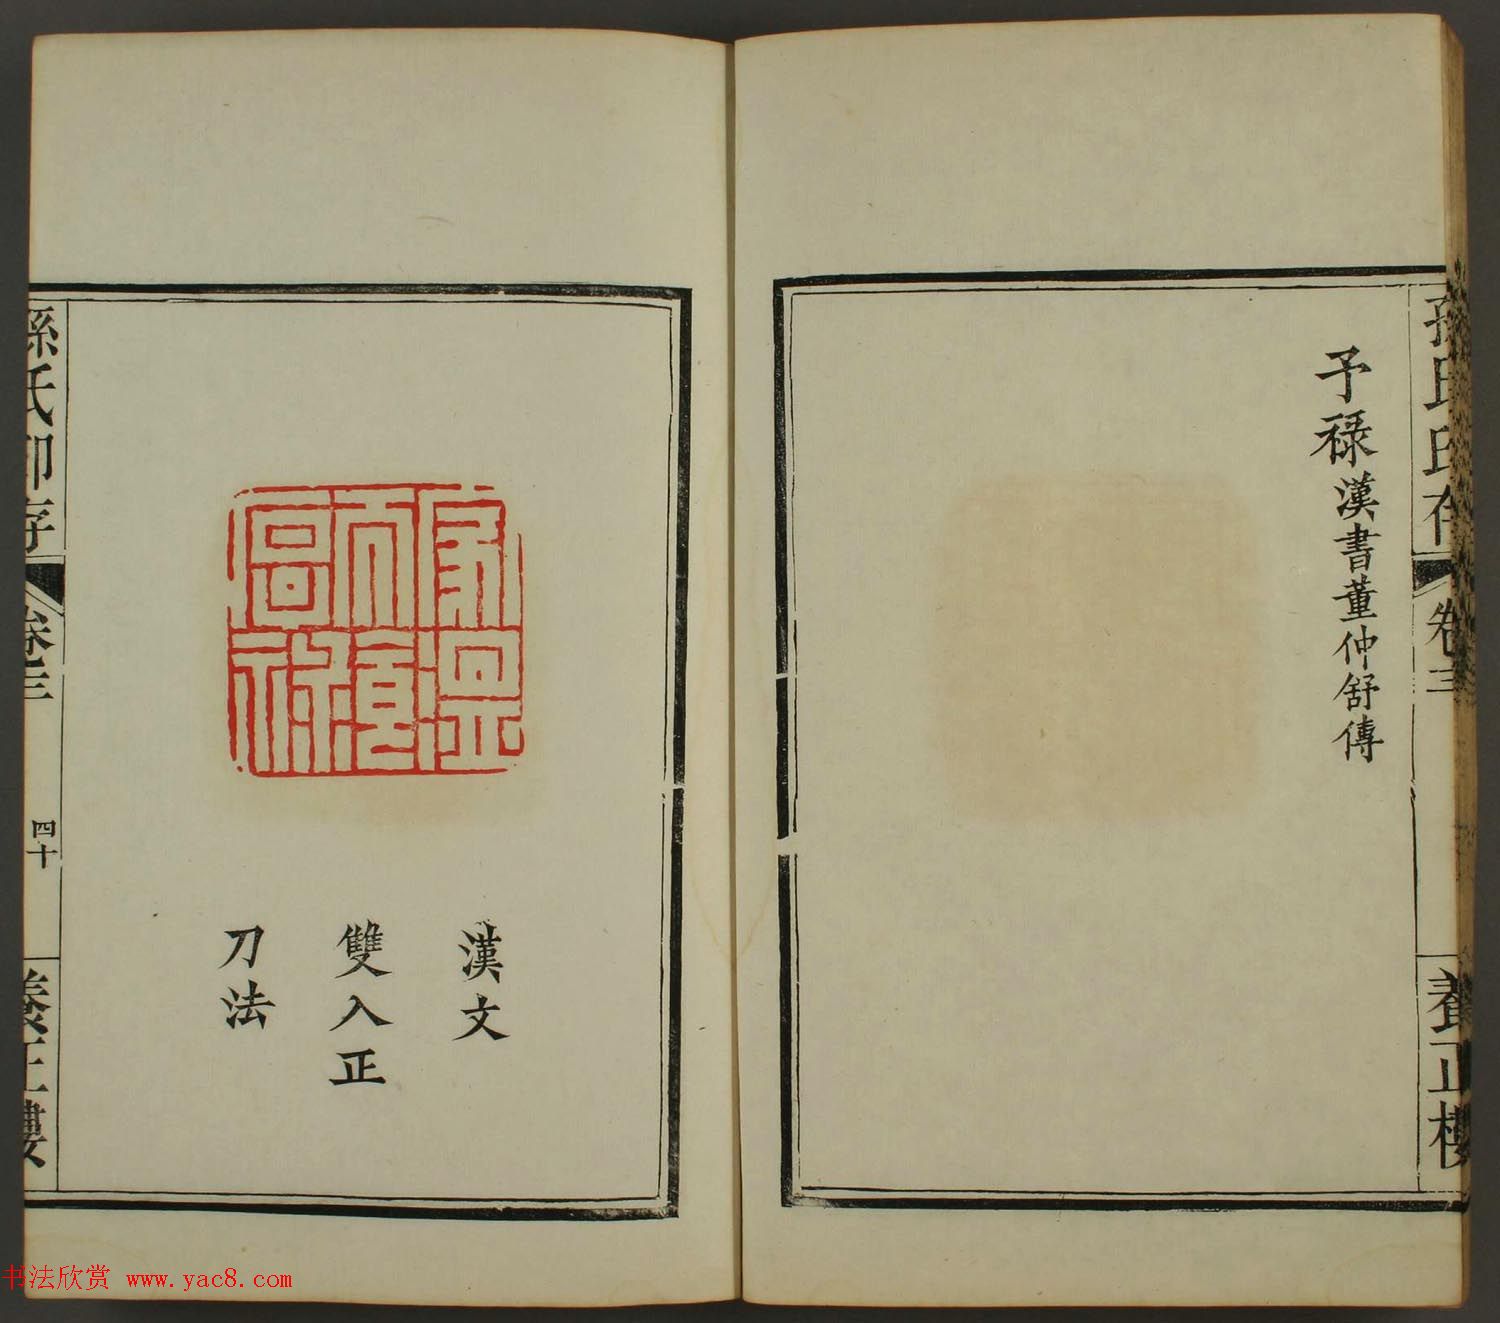 孫氏印存
卷三
養正樓
予祿漢書董仲舒傳
家溫
而食
厚祿
漢文
雙入正
刀法
孫氏印存
卷三
四十
養正樓
书法欣赏 www.yac8.com